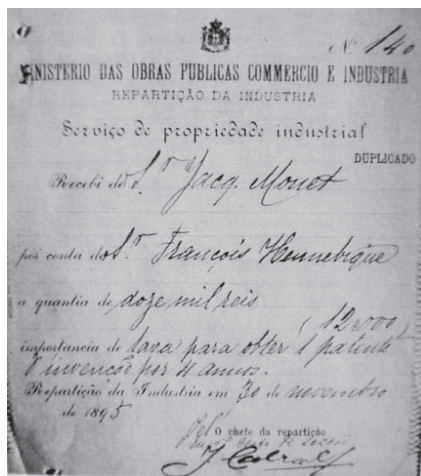 Nº 140
MINISTERIO DAS OBRAS PUBLICAS COMMERCIO E INDUSTRIA
REPARTIÇÃO DA INDUSTRIA
Serviço de propriedade industrial
DUPLICADO
Recebi do S.r Jacq. Monet
por conta do S.r François Hennebique
a quantia de doze mil reis
(12$000)
importancia de taxa para obter 1 patente
d'invenção por 4 annos.
Repartição da Industria em 30 de novembro
de 1895
Pel O chefe da repartição
chefe de secção
J. Cabral